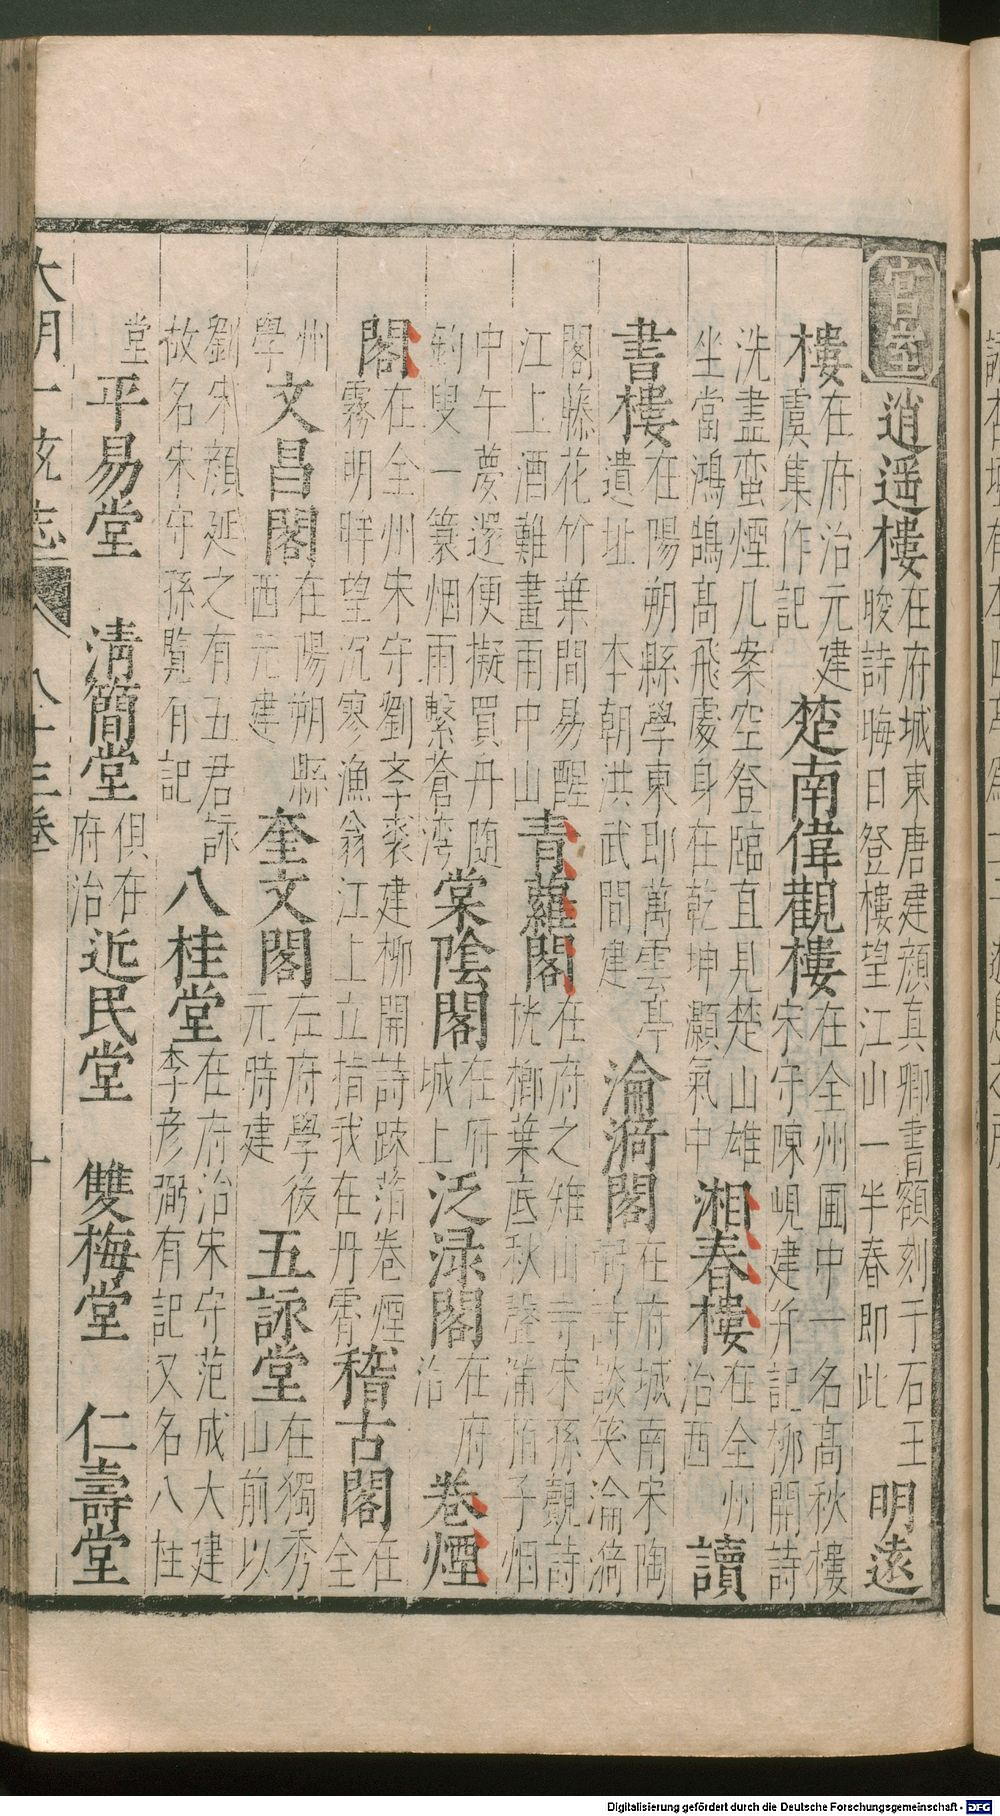 宮室　逍遥樓　在府城東唐建顔真卿書額刻于石王
晙詩晦日登樓望江山一半春即此　明遠
樓　在府治元建
虞集作記　楚南偉觀樓　在全州圃中一名高秋樓
宋守陳峴建并記栁開詩
洗盡蛮煙几案空登臨直見楚山雄
坐當鴻鵠髙飛處身在乾坤灝氣中　湘春樓　在全州
治西　讀
書樓　在陽朔縣學東即萬雲亭
遺址　本朝洪武間建　淪漪閣　在府城南宋陶
弼詩談笑淪漪
閣藤花竹葉間易醒
江上酒難畫雨中山　青蘿閣　在府之雉山寺宋孫覿詩
桄榔葉底秋聲滿栢子烟
中午夢還便擬買丹随
釣叟一簑烟雨繫蒼湾　棠陰閣　在府
城上　泛淥閣　在府
治　卷煙
閣　在全州宋守劉孝裘建柳開詩疎箔卷煙
霧明眸望沉寥漁翁江上立指我在丹霄　稽古閣　在
全
州
學　文昌閣　在陽朔縣
西元建　奎文閣　在府學後
元時建　五詠堂　在獨秀
山前以
劉宋顔延之有五君詠
故名宋守孫覽有記　八桂堂　在府治宋守范成大建
李彦弼有記又名八桂
堂　平易堂　清簡堂　俱在
府治　近民堂　雙梅堂　仁壽堂
大明一統志　八十三卷　十
Digitalisierung gefördert durch die Deutsche Forschungsgemeinschaft - DFG